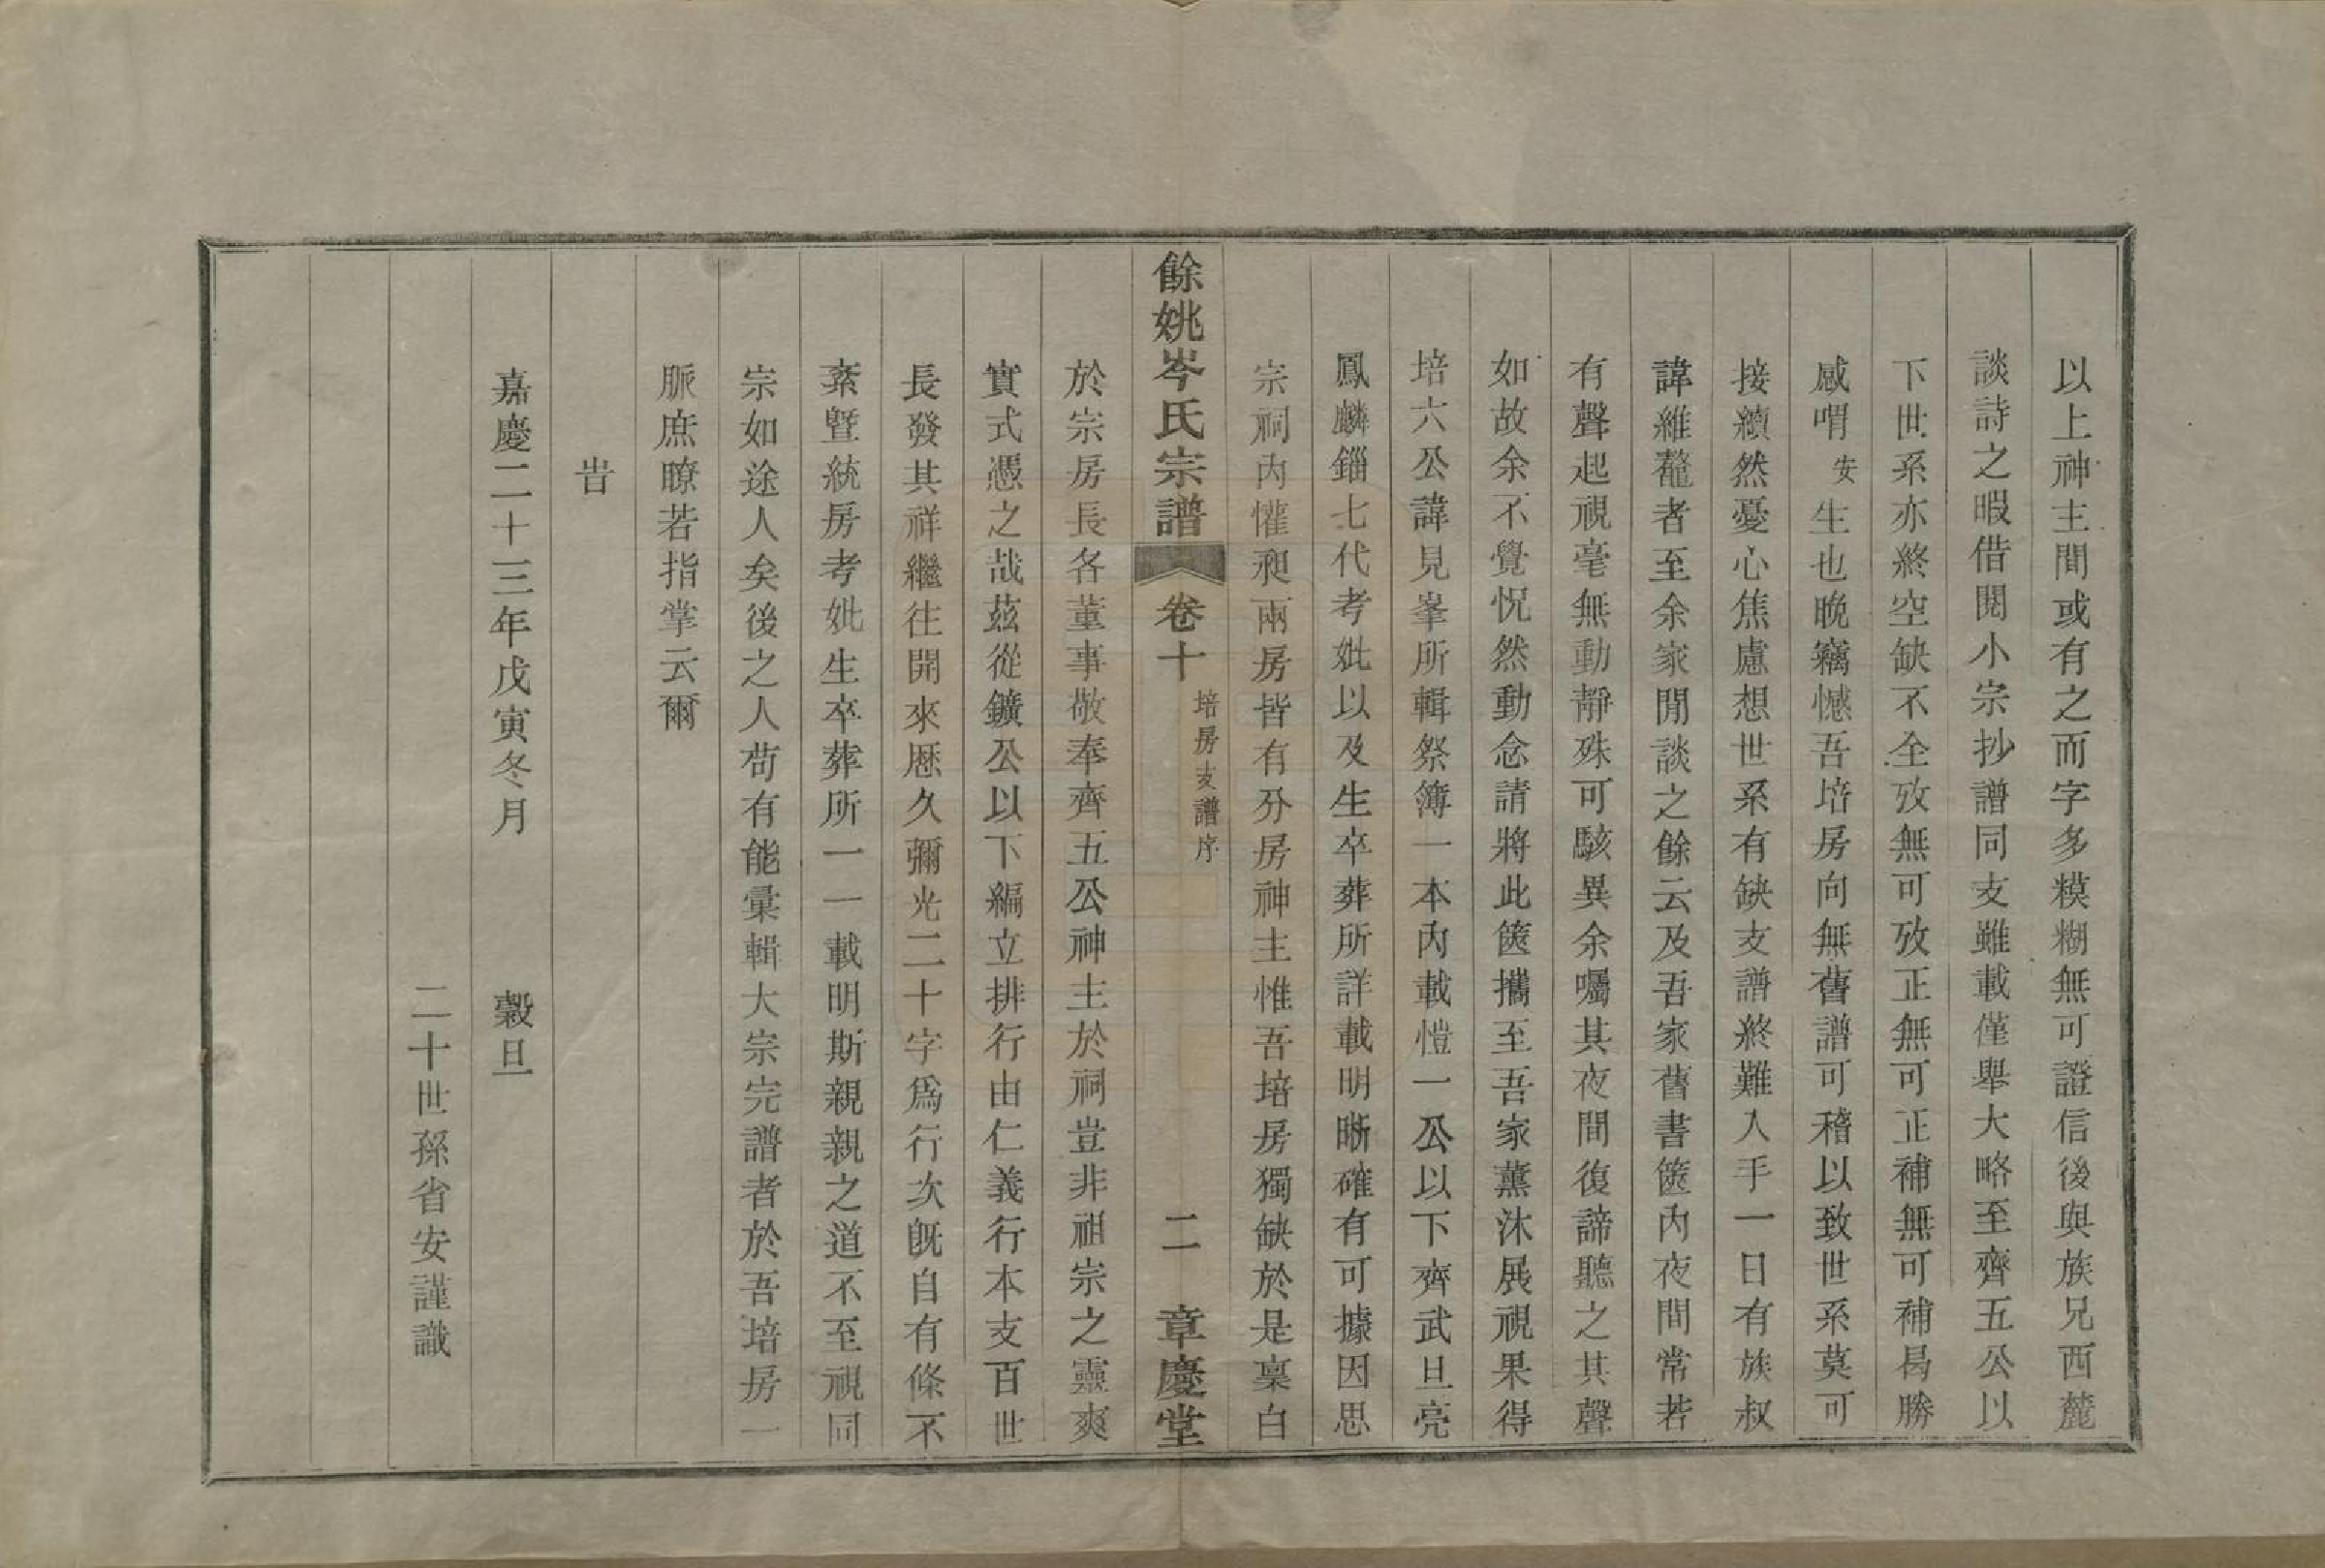 以上神主間或有之而字多糢糊無可證信後與族兄西麓
談詩之暇借閱小宗抄譜同支雖載僅舉大略至齊五公以
下世系亦終空缺不全攷無可攷正無可正補無可補曷勝
感喟安生也晚竊憾吾培房向無舊譜可稽以致世系莫可
接續然憂心焦慮想世系有缺支譜終難入手一日有族叔
諱維鼇者至余家閒談之餘云及吾家舊書篋內夜間常若
有聲起視毫無動靜殊可駭異余囑其夜間復諦聽之其聲
如故余不覺怳然動念請將此篋攜至吾家薰沐展視果得
培六公諱見峯所輯祭簿一本內載愷一公以下齊武旦亮
鳳麟錙七代考妣以及生卒葬所詳載明晰確有可據因思
宗祠內懽昶兩房皆有分房神主惟吾培房獨缺於是稟白
餘姚岑氏宗譜 卷十 培房支譜序 二 章慶堂
於宗房長各董事敬奉齊五公神主於祠豈非祖宗之靈爽
實式憑之哉茲從鑛公以下編立排行由仁義行本支百世
長發其祥繼往開來歷久彌光二十字爲行次旣自有條不
紊暨統房考妣生卒葬所一一載明斯親親之道不至視同
宗如途人矣後之人苟有能彙輯大宗完譜者於吾培房一
脈庶瞭若指掌云爾
旹
嘉慶二十三年戊寅冬月 穀旦
二十世孫省安謹識